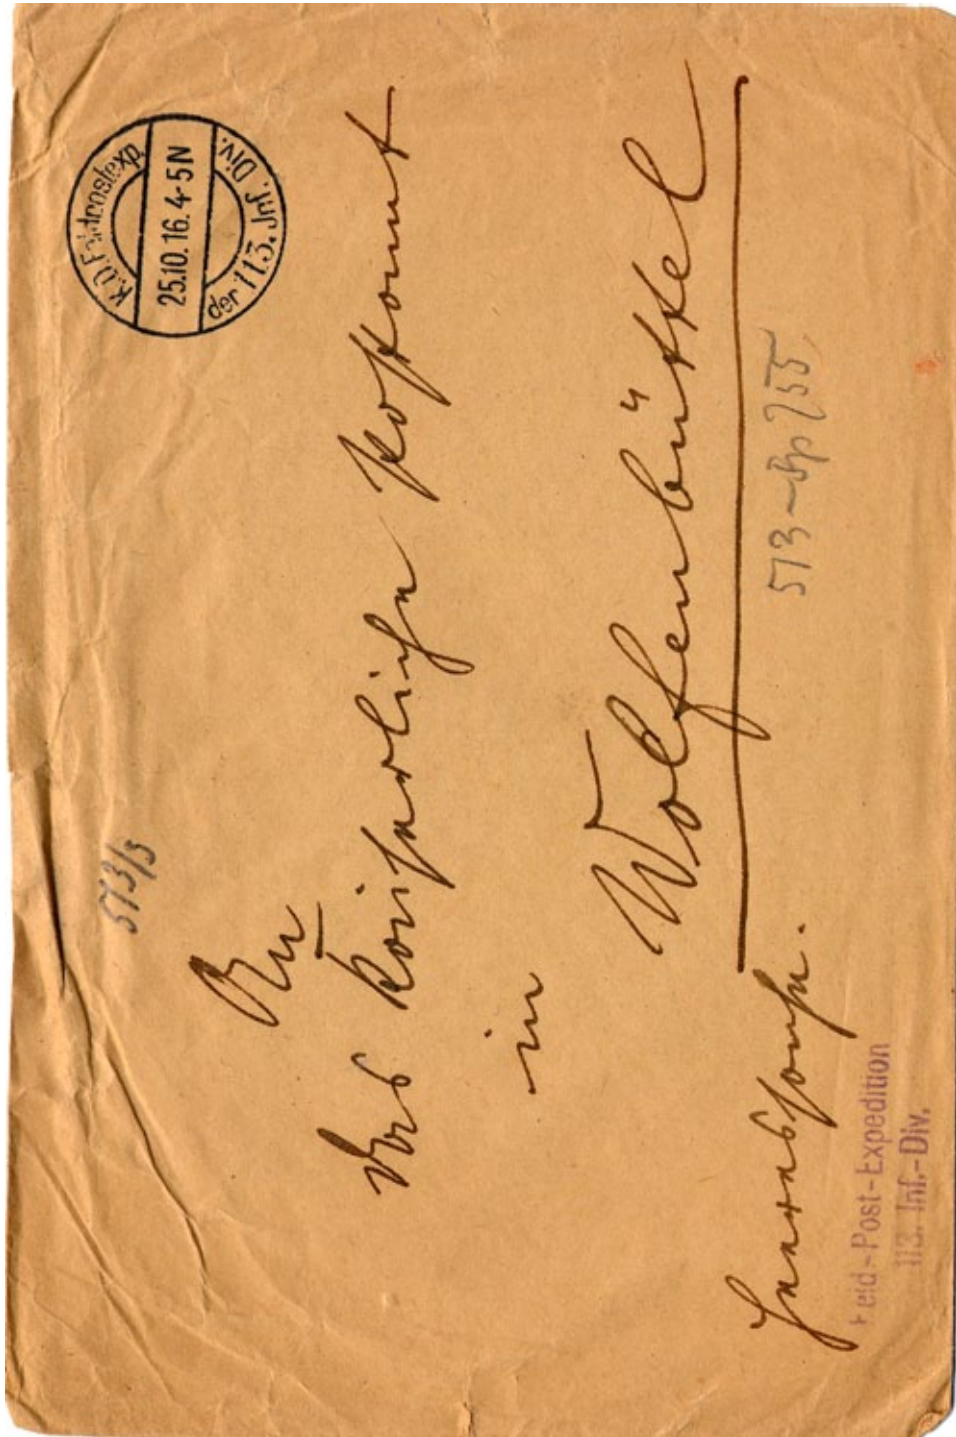 K.D. Feldpostexp.
25.10.16. 4-5N
der 113. Inf. Div.
573/3
An
das Kaiserliche Postamt
in
Wolfenbüttel
Heeressache.
573
Feld-Post-Expedition
113. Inf.-Div.